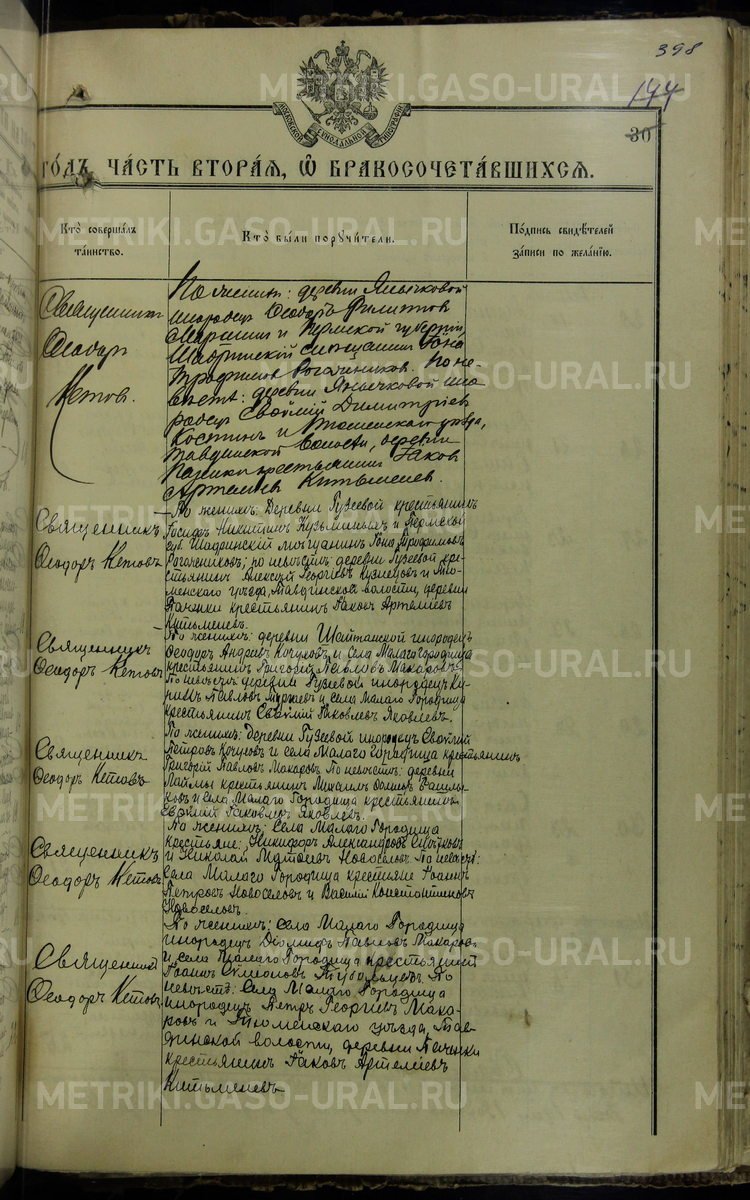 398
144
30
МОСКОВСКОЙ СИНОДАЛЬНОЙ ТИПОГРАФІИ
ГО́ДЪ, ЧА́СТЬ ВТОРА́Я, Ѡ БРАКОСОЧЕТА́ВШИХСЯ.
Кто̀ соверша́лъ та́инство.
Кто̀ бы́ли порꙋчи́тели.
По́дпись свидѣ́телей за́писи по жела́нїю.
Священникъ
Ѳеодоръ
Кетовъ.
По женихѣ: деревни Янычковой
инородецъ Ѳеодоръ Филипповъ
и Пермской губерніи,
Шадринскій мѣщанинъ Іона
Трофимовъ Рогачниковъ. По не-
вѣстѣ: деревни Янычковой ино
родецъ Евѳимій Димитріевъ
Костинъ и Тюменскаго уѣзда,
Тавдинской волости, деревни
крестьянинъ Іаковъ
Артеміевъ Китьменевъ.
Священникъ
Ѳеодоръ Кетовъ
По женихѣ: Деревни Гузеевой крестьянинъ
Іосифъ Никитинъ Кузьминыхъ и Пермской
губ. Шадринскій мѣщанинъ Іона Трофимовъ
Рогачниковъ; по невѣстѣ: деревни Гузеевой кре-
стьянинъ Алексѣй Георгіевъ Кузнецовъ и Тю-
менскаго уѣзда, Тавдинской волости, деревни
крестьянинъ Іаковъ Артеміевъ
Китьменевъ.
Священникъ
Ѳеодоръ Кетовъ
По женихѣ: деревни Шайтанской инородецъ
Ѳеодоръ Андреевъ Кочуровъ и села Малаго городища
крестьянинъ Григорій Павловъ Макаровъ.
По невѣстѣ: деревни Гузеевой инородецъ Ку-
Павловъ и села Малаго Городища
крестьянинъ Евѳимій Іаковлевъ Яковлевъ.
Священникъ
Ѳеодоръ Кетовъ
По женихѣ: деревни Гузеевой инородецъ Евѳимій
Петровъ и села Малаго Городища крестьянинъ
Григорій Павловъ Макаровъ. По невѣстѣ: деревни
Лаймы крестьянинъ Михаилъ Василь-
ковъ и села Малаго Городища крестьянинъ
Евѳимій Іаковлевъ Яковлевъ.
Священникъ
Ѳеодоръ Кетовъ
По женихѣ: Села Малаго Городища
крестьяне: Никифоръ Александровъ
и Николай Матѳеевъ Новоселовъ. По невѣстѣ:
Села Малаго Городища крестьяне Іоаннъ
Петровъ Новоселовъ и Василій Константиновъ
Новоселовъ.
Священникъ
Ѳеодоръ Кетовъ
По женихѣ: села Малаго Городища
инородецъ Діомидъ Павловъ Макаровъ
и села Малаго Городища крестьянинъ
Іоаннъ Симеоновъ По
невѣстѣ: Села Малаго Городища
инородецъ Петръ Георгіевъ Мака-
ровъ и Тюменскаго уѣзда, Тав-
динской волости, деревни
крестьянинъ Іаковъ Артеміевъ
Китьменевъ
METRIKI.GASO-URAL.RU